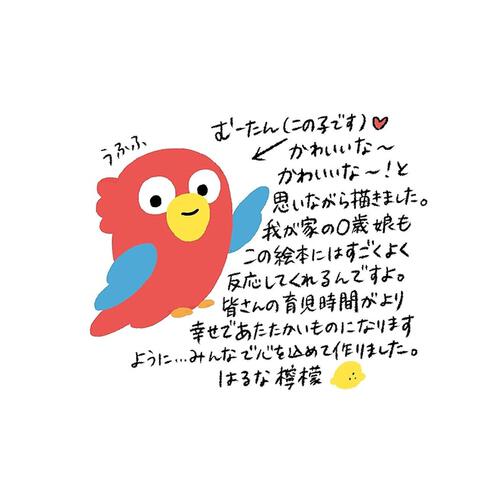 うふふ
むーたん(この子です)♥
かわいいな〜
かわいいな〜!と
思いながら描きました。
我が家の0歳娘も
この絵本にはすごくよく
反応してくれるんですよ。
皆さんの育児時間がより
幸せであたたかいものになります
ように…みんなで心を込めて作りました。
はるな檸檬